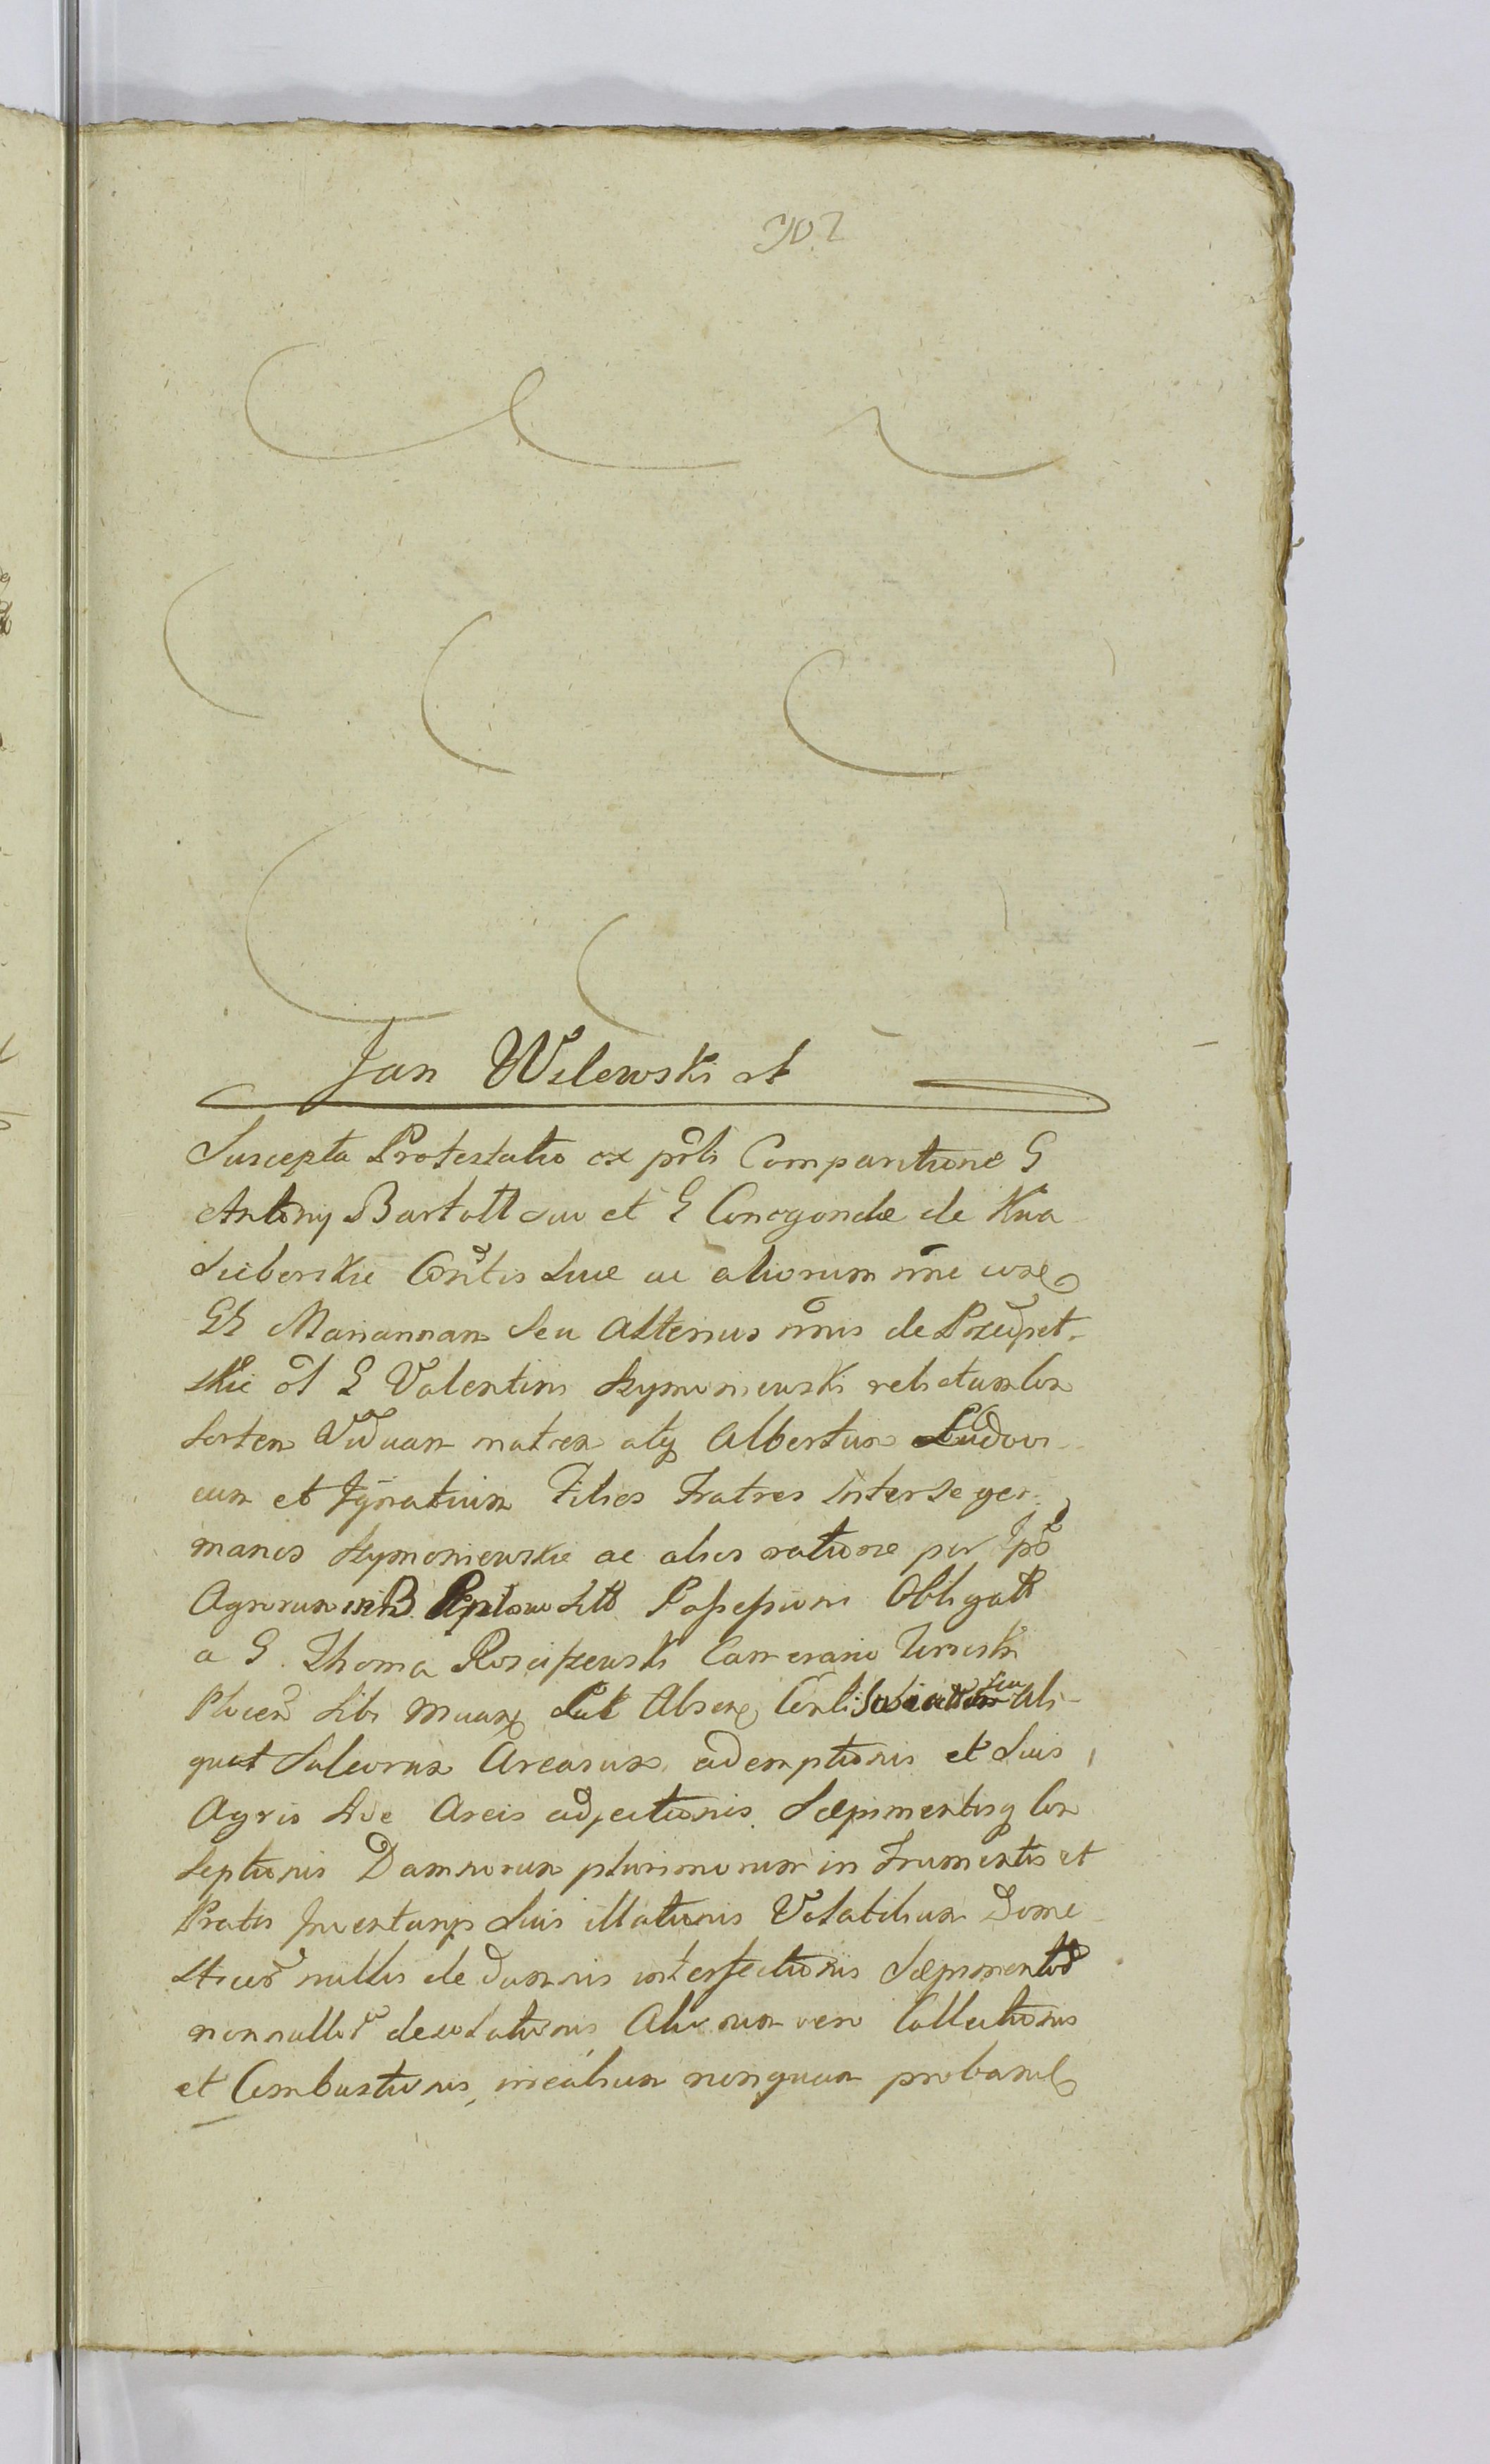 702
Jan Wilewski
Suscepta Protestatio ex prli Comparitione G
Antonij et G Conegondae de Kna
Sieberskie Contis suae ac aliorum nne cone
GG Mariannam seu alterius nnis de
skie ol G Valentini Szymoniewski relictam Con
sortem Viduam matrem atq Albertum Ludovi
cum et Ignatium Filios Fratres inter se ger
manos Szymoniewskie ac alios ratione per Ipso
Agrorum in B. sitto Possessioni Obligatt
a G. Thoma Rosciszewski Camerario Terrestri
Plocen sibi seu Ali
quot Sulcorum Arearum ademptionis et suis
Agris sive Areis adjectionis Saepimentisq Con
septionis Damnorum plurimorum in Frumentis et
Pratis Inventarijs suis illationis Volatilium Dome
sticor nullis de damnis interfectionis Saepimentor
nonnullor desolationis Aliorum vero Collectionis
et Combustionis, nunquam proband